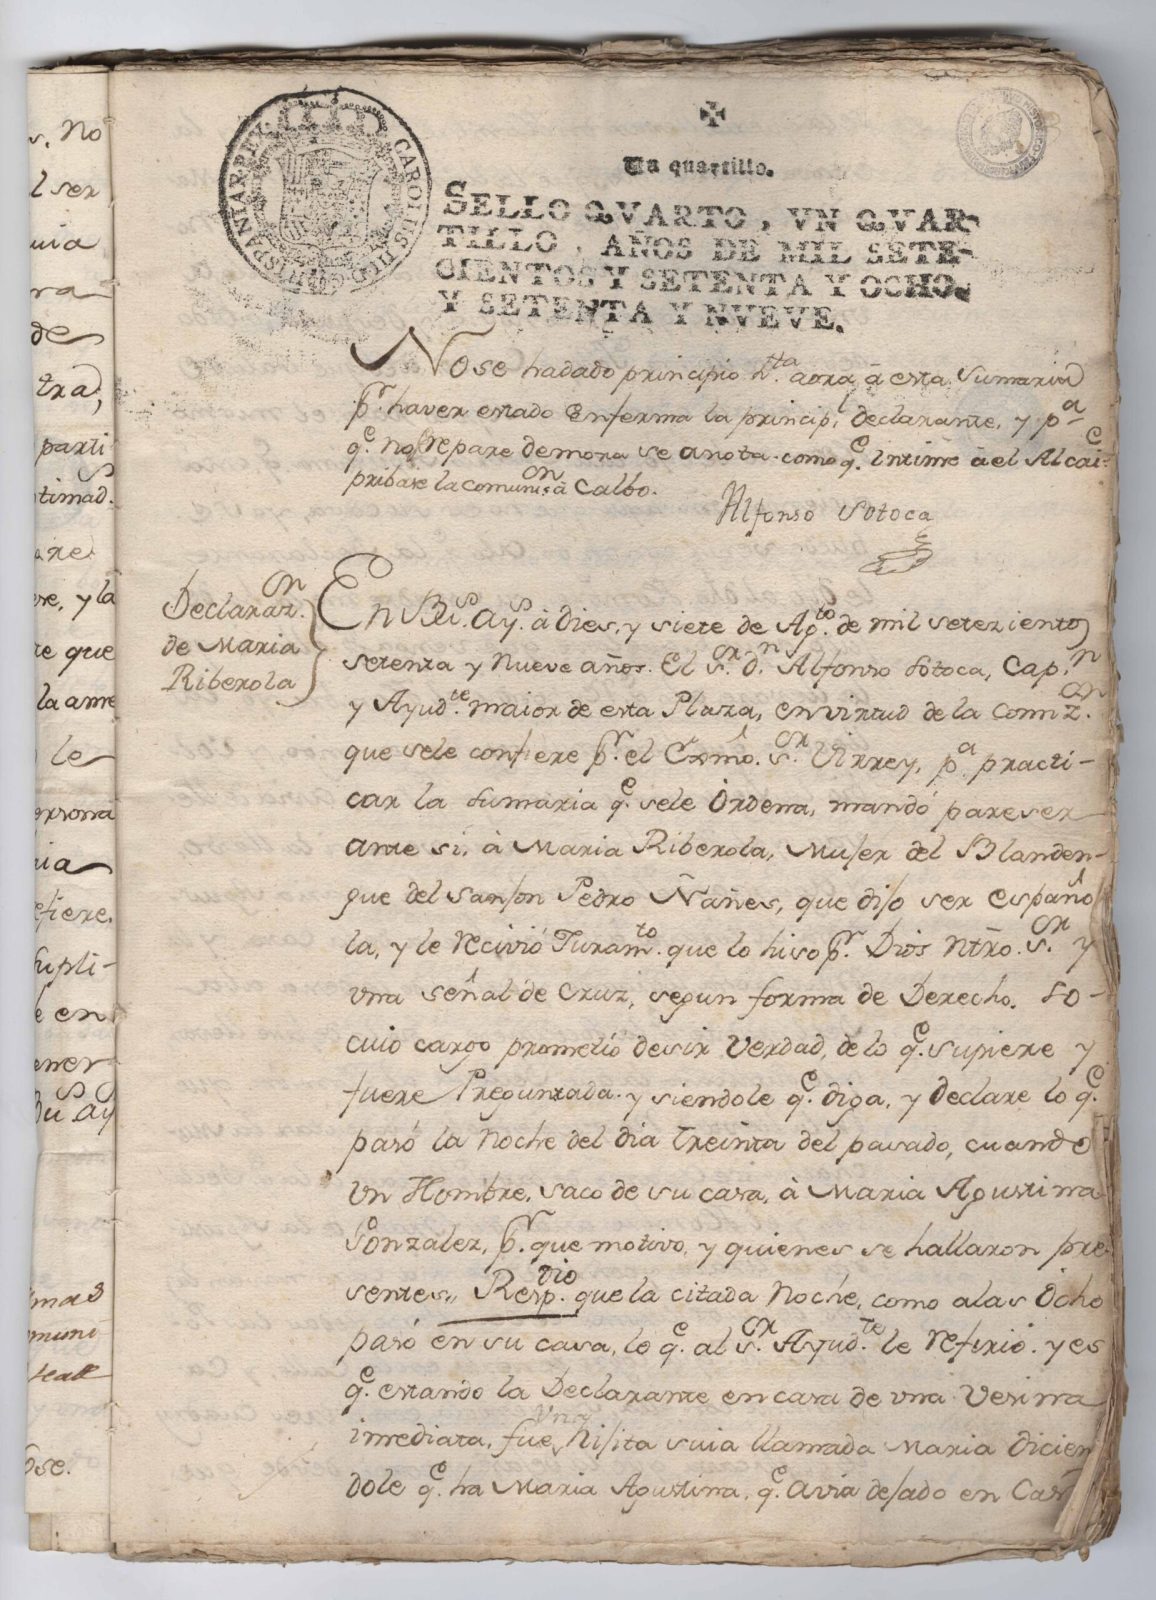 CAROLUS III D G HISPANIAR REX
Un quartillo.
SELLO QVARTO, VN QVAR-
TILLO, AÑOS DE MIL SETE-
CIENTOS Y SETENTA Y OCHO,
Y SETENTA Y NVEVE.
No se ha dado principio h.ta aora, â esta Sumaria
p.r haver estado Enferma la princip.l declarante, y p.a
q.e no se repare demora se anota. como q.e intimè â el Alcai.e
pribase la comunis.on â Calbo.
Alfonso Sotoca
Declaraz.on
de Maria
Riberola
En B.s Ay.s â dies, y siete de Ag.to de mil setezientos
setenta y Nueve años. El S.or d.n Alfonso Sotoca, Cap.n
y Ayud.te maior de esta Plaza, en virtud de la Comiz.on
que sele confiere p.r el Exmo. S.or Virrey, p.a practi-
car la sumaria q.e sele Ordena, mandó pareser
ante si, â Maria Riberola, Mujer del Blanden-
gue del Sanjon Pedro Ñañes, que dijo ser españo
la, y le recivió Juram.to que lo hiso p.r Dios Ntro. S.or y
una señal de Cruz, segun forma de Derecho. so
cuio cargo prometió desir Verdad, de lo q.e supiere y
fuere Preguntada. y siendole q.e diga, y declare lo q.e
pasó la Noche del dia treinta del pasado, cuando
un Hombre, saco de su casa, â Maria Agustina
Gonzalez, p.r que motivo, y quienes se hallaron pre
sentes,, Resp.dio que la citada Noche, como a las Ocho
pasó en su casa, lo q.e al S.or Ayud.te le refirió. y es
q.e estando la Declarante en casa de una Vesina
imediata, fue una hijita suia llamada Maria dicien
dole q.e ha Maria Agustina, q.e avia dejado en Cas
s, No
l ser
uia
ra
de
tra,
parti
timad.s
are
re, y la
te que
la ame
le
ersona
ia
efiere.
supli-
e en
ener
Bu.s Ay.s
mas
muni
ose.